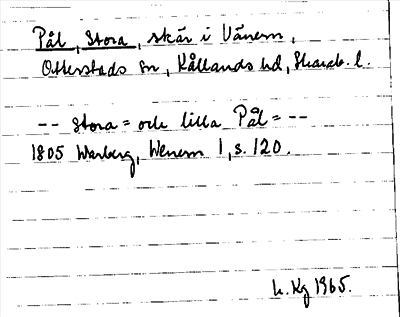 Pål, Stora, skär i Vänern,
Otterstads sn, Kållands hd, Skarab. l.
-- Stora = och lilla Pål = --
1805 Warberg, Wenern 1, s. 120.
h. Kg 1965.